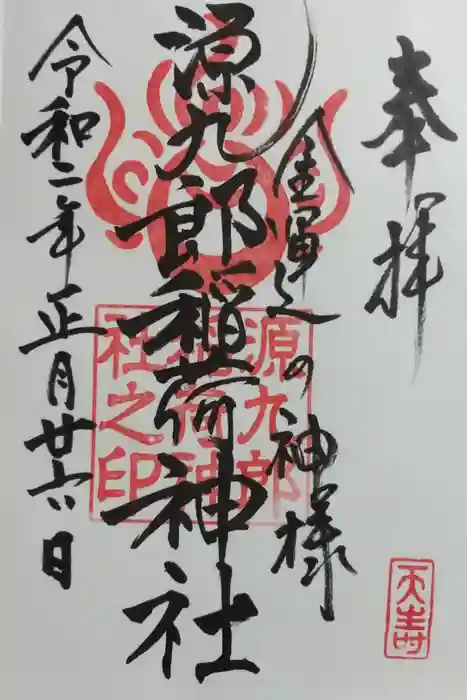 奉拝
金運の神様
源九郎稲荷神社
令和二年正月廿六日
源九郎
稲荷神
社之印